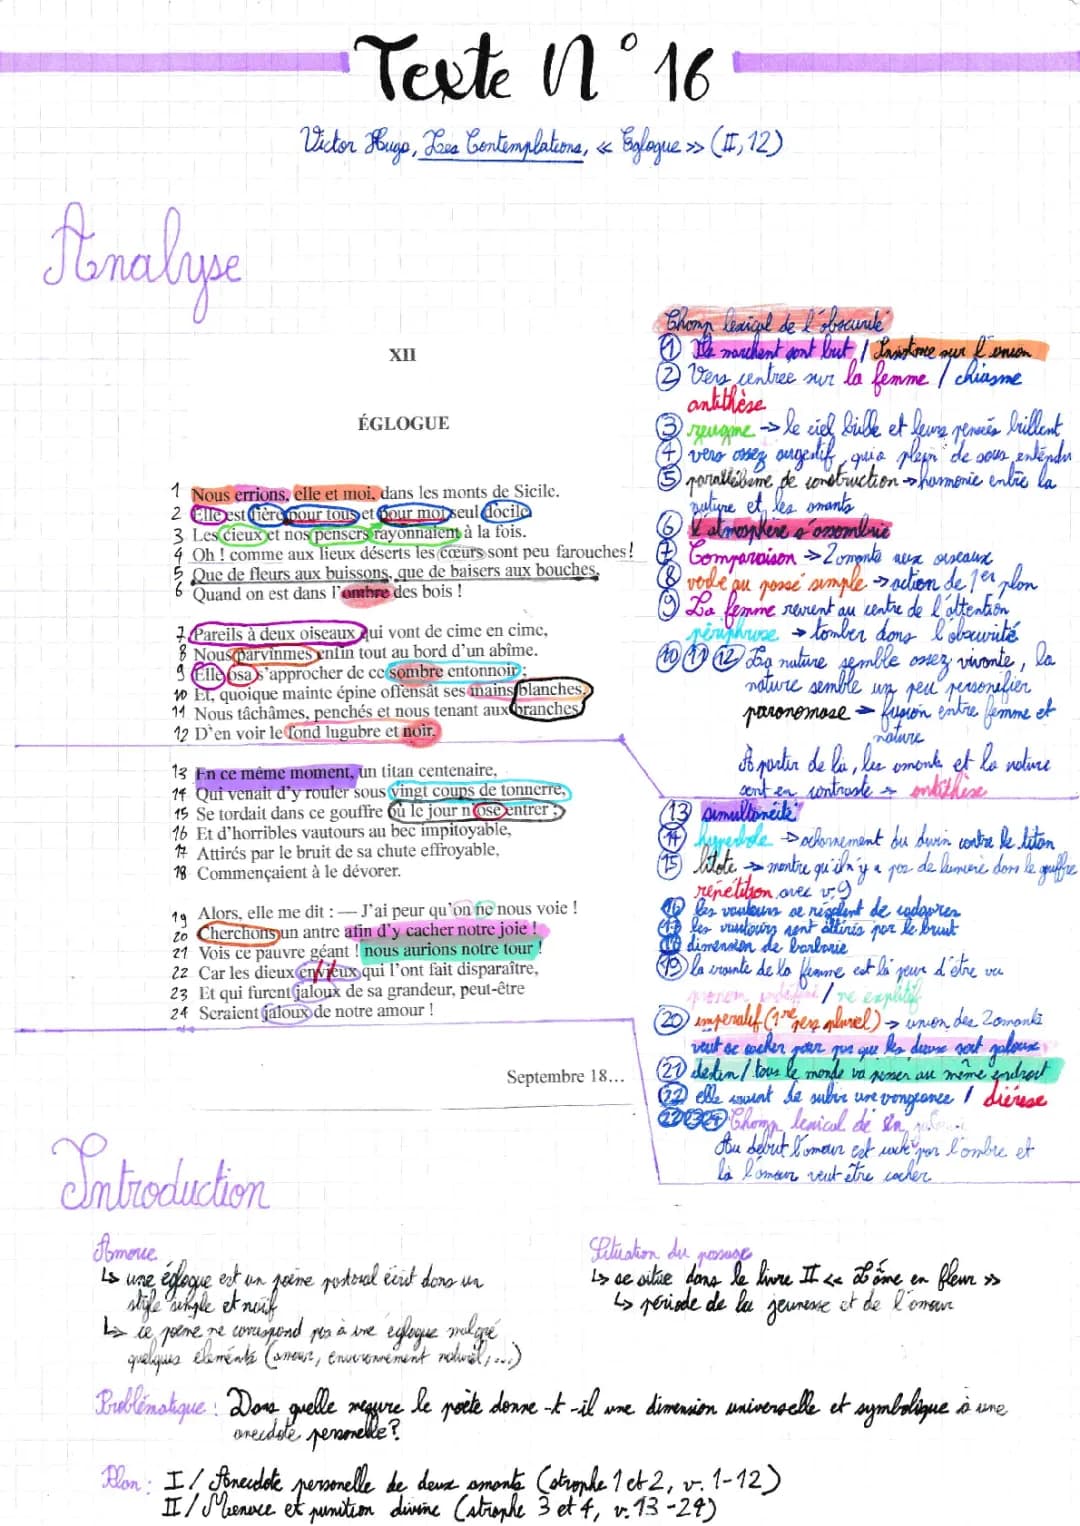 Texte N°16
Victor Hugo, Les Contemplations, « Eglogue » (II, 12)
Analyse
XII
ÉGLOGUE
1 Nous errions, elle et moi, dans les monts de Sicile.
2 Elle est fière pour tous et pour moi seul docile.
3 Les cieux et nos pensers rayonnaient à la fois.
4 Oh ! comme aux lieux déserts les cœurs sont peu farouches !
5 Que de fleurs aux buissons, que de baisers aux bouches,
6 Quand on est dans l'ombre des bois !
7 Pareils à deux oiseaux qui vont de cime en cime,
8 Nous parvînmes enfin tout au bord d'un abîme.
9 Elle osa s'approcher de ce sombre entonnoir ;
10 Et, quoique mainte épine offensât ses mains blanches,
11 Nous tâchâmes, penchés et nous tenant aux branches,
12 D'en voir le fond lugubre et noir.
13 En ce même moment, un titan centenaire,
14 Qui venait d'y rouler sous vingt coups de tonnerre,
15 Se tordait dans ce gouffre où le jour n'ose entrer ;
16 Et d'horribles vautours au bec impitoyable,
17 Attirés par le bruit de sa chute effroyable,
18 Commençaient à le dévorer.
19 Alors, elle me dit : — J'ai peur qu'on ne nous voie !
20 Cherchons un antre afin d'y cacher notre joie !
21 Vois ce pauvre géant ! nous aurions notre tour !
22 Car les dieux envieux qui l'ont fait disparaître,
23 Et qui furent jaloux de sa grandeur, peut-être
24 Seraient jaloux de notre amour !
Septembre 18...
Champ lexical de l'obscurité
① Ils marchent sont but / Insistance sur l'union
② Vers centrée sur la femme / chiasme
antithèse
③ zeugme -> le ciel brille et leurs pensées brillent
④ vers assez sugestif, qui a plein de sous entendu
⑤ parallélisme de construction -> harmonie entre la
nature et les amants
⑥ l'atmosphère s'assombrie
⑦ Comparaison -> 2 amants aux oiseaux
⑧ verbe au passé simple -> action de 1er plan
⑨ La femme revient au centre de l'attention
périphrase -> tomber dans l'obscurité
⑩ ⑪ ⑫ La nature semble assez vivante, la
nature semble un peu personifier
paronomase -> fusion entre femme et
nature
À partir de là, les amants et la nature
sont en contraste -> antithèse
⑬ simultanéité
⑭ hyperbole -> acharnement du divin contre le titan
⑮ litote -> montre qu'il n'y a pas de lumière dans le gouffre
répétition avec v.9
⑯ les vautours se régalent de cadavres
⑰ les vautours sont attirés par le bruit
⑱ dimension de barbarie
⑲ la crainte de la femme est la peur d'être vu
pronom indéfini / ne explétif
⑳ impératif (1re pers pluriel) -> union des 2 amants
veut se cacher pour pas que les dieux soit jaloux
㉑ destin / tous le monde va passer au même endroit
㉒ elle craint de subir une vengeance / diérèse
㉒㉓㉔ Champ lexical de
Au début l'amour est caché par l'ombre et
là l'amour veut être cacher
Introduction
Amorce
↳ une églogue est un poème pastoral écrit dans un
style simple et naïf
↳ ce poème ne correspond pas à une eglogue malgré
quelques éléments (amour, environnement naturel, ...)
Situation du passage
↳ se situe dans le livre II « L'âme en fleur »
↳ période de la jeunesse et de l'amour
Problématique : Dans quelle mesure le poète donne-t-il une dimension universelle et symbolique à une
anecdote personelle ?
Plan : I / Anecdote personelle de deux amants (strophe 1 et 2, v. 1-12)
II / Menace et punition divine (strophe 3 et 4, v. 13-24)